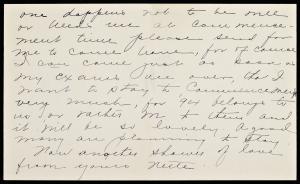 one happens not to be one
or needs me at Commence-
ment time please send for
me to come home, for of course
I can come just as soon as
my exams are over, tho' I
want to stay to Commencement
very much, for '92 belongs to
us or rather we to them and
it will be so lovely. A good
many are planning to stay.
Now another shower of love
from yours Nette